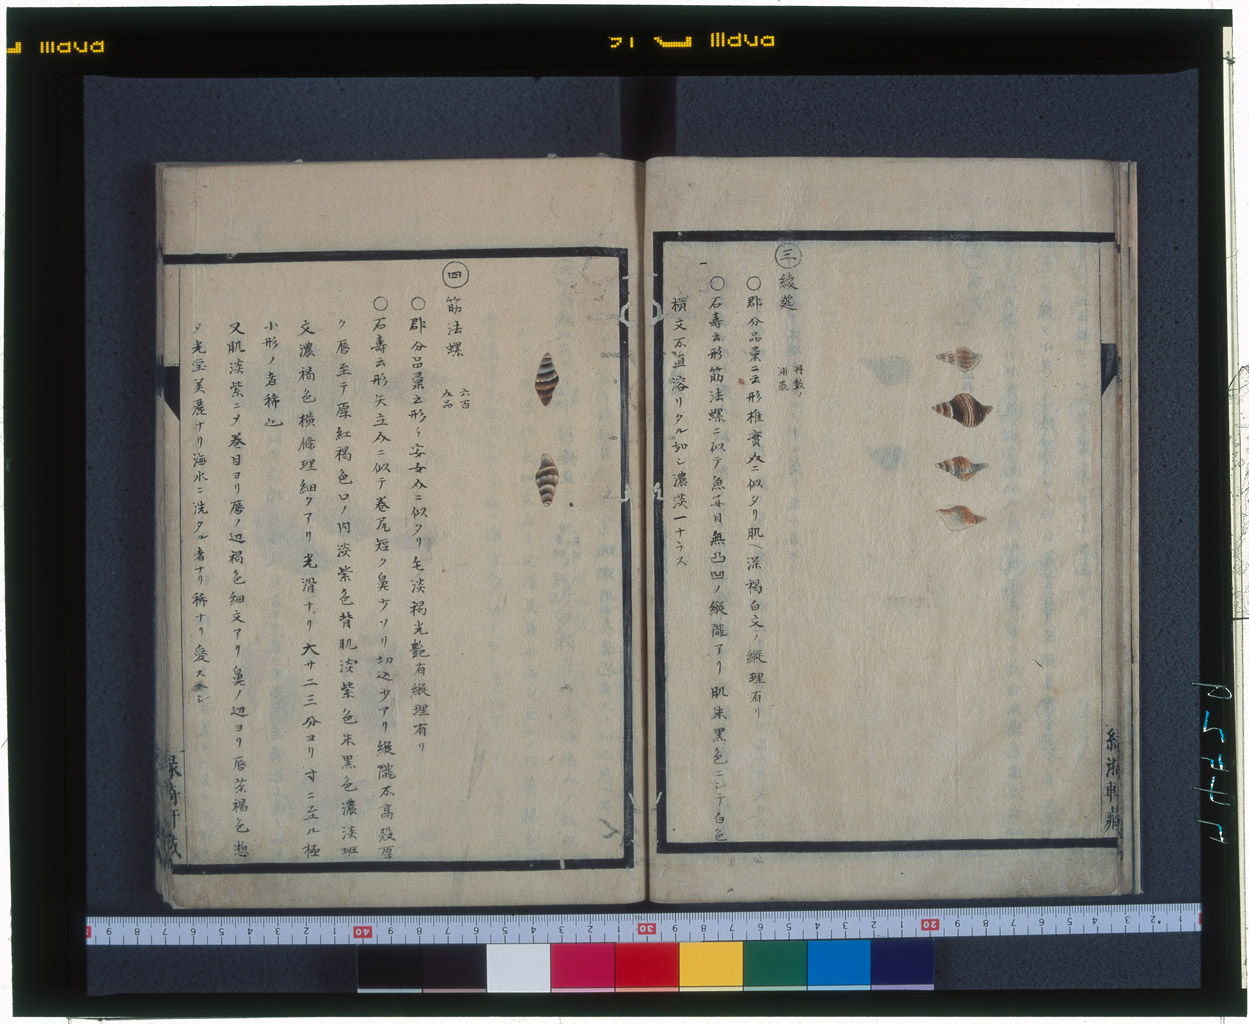 三 綾莚
丹敷ノ
浦張
〇郡分品彙ニ云形椎實介ニ似タリ肌ハ深褐白文ノ縦理有リ
〇石壽云形筋法螺ニ似テ魚子目無凸凹ノ縦隴アリ肌朱黒色ニシテ白色
横文不直溶リタル如シ濃淡一ナラス
緑漪軒藏
四 筋法螺
六百
九品
〇郡分品彙云形ハ安女介ニ似タリ毛淡褐光艶有縦理有リ
〇石壽云形矢立介ニ似テ巻尾短ク鼻少ソリ切込少アリ縦隴不高殻厚
ク唇至テ厚紅褐色口ノ内淡紫色背肌淡紫色朱黒色濃淡班
文濃褐色横條理細クアリ光滑ナリ大サ二三分ヨリ寸ニ至ル極
小形ノ者稀也
又肌淡紫ニメ巻目ヨリ唇ノ辺褐色細文アリ鼻ノ辺ヨリ唇茶褐色惣
メ光宝美麗ナリ海水ニ洗タル者ナリ稀ナリ愛スヘシ
緑漪軒藏